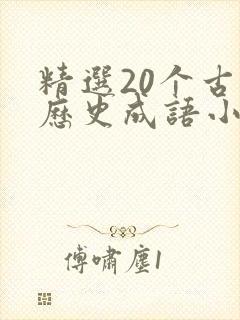 精選20个古
歷史成語小
傅嘯塵1